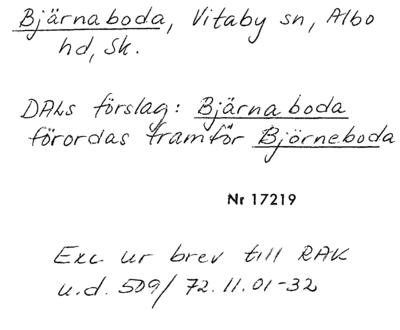 Bjärnaboda, Vitaby sn, Albo
hd, Sk.
DALs förslag: Bjärnaboda
förordas framför Björneboda
Nr 17219
Exc ur brev till RAK
u.d. 509/72.11.01-32